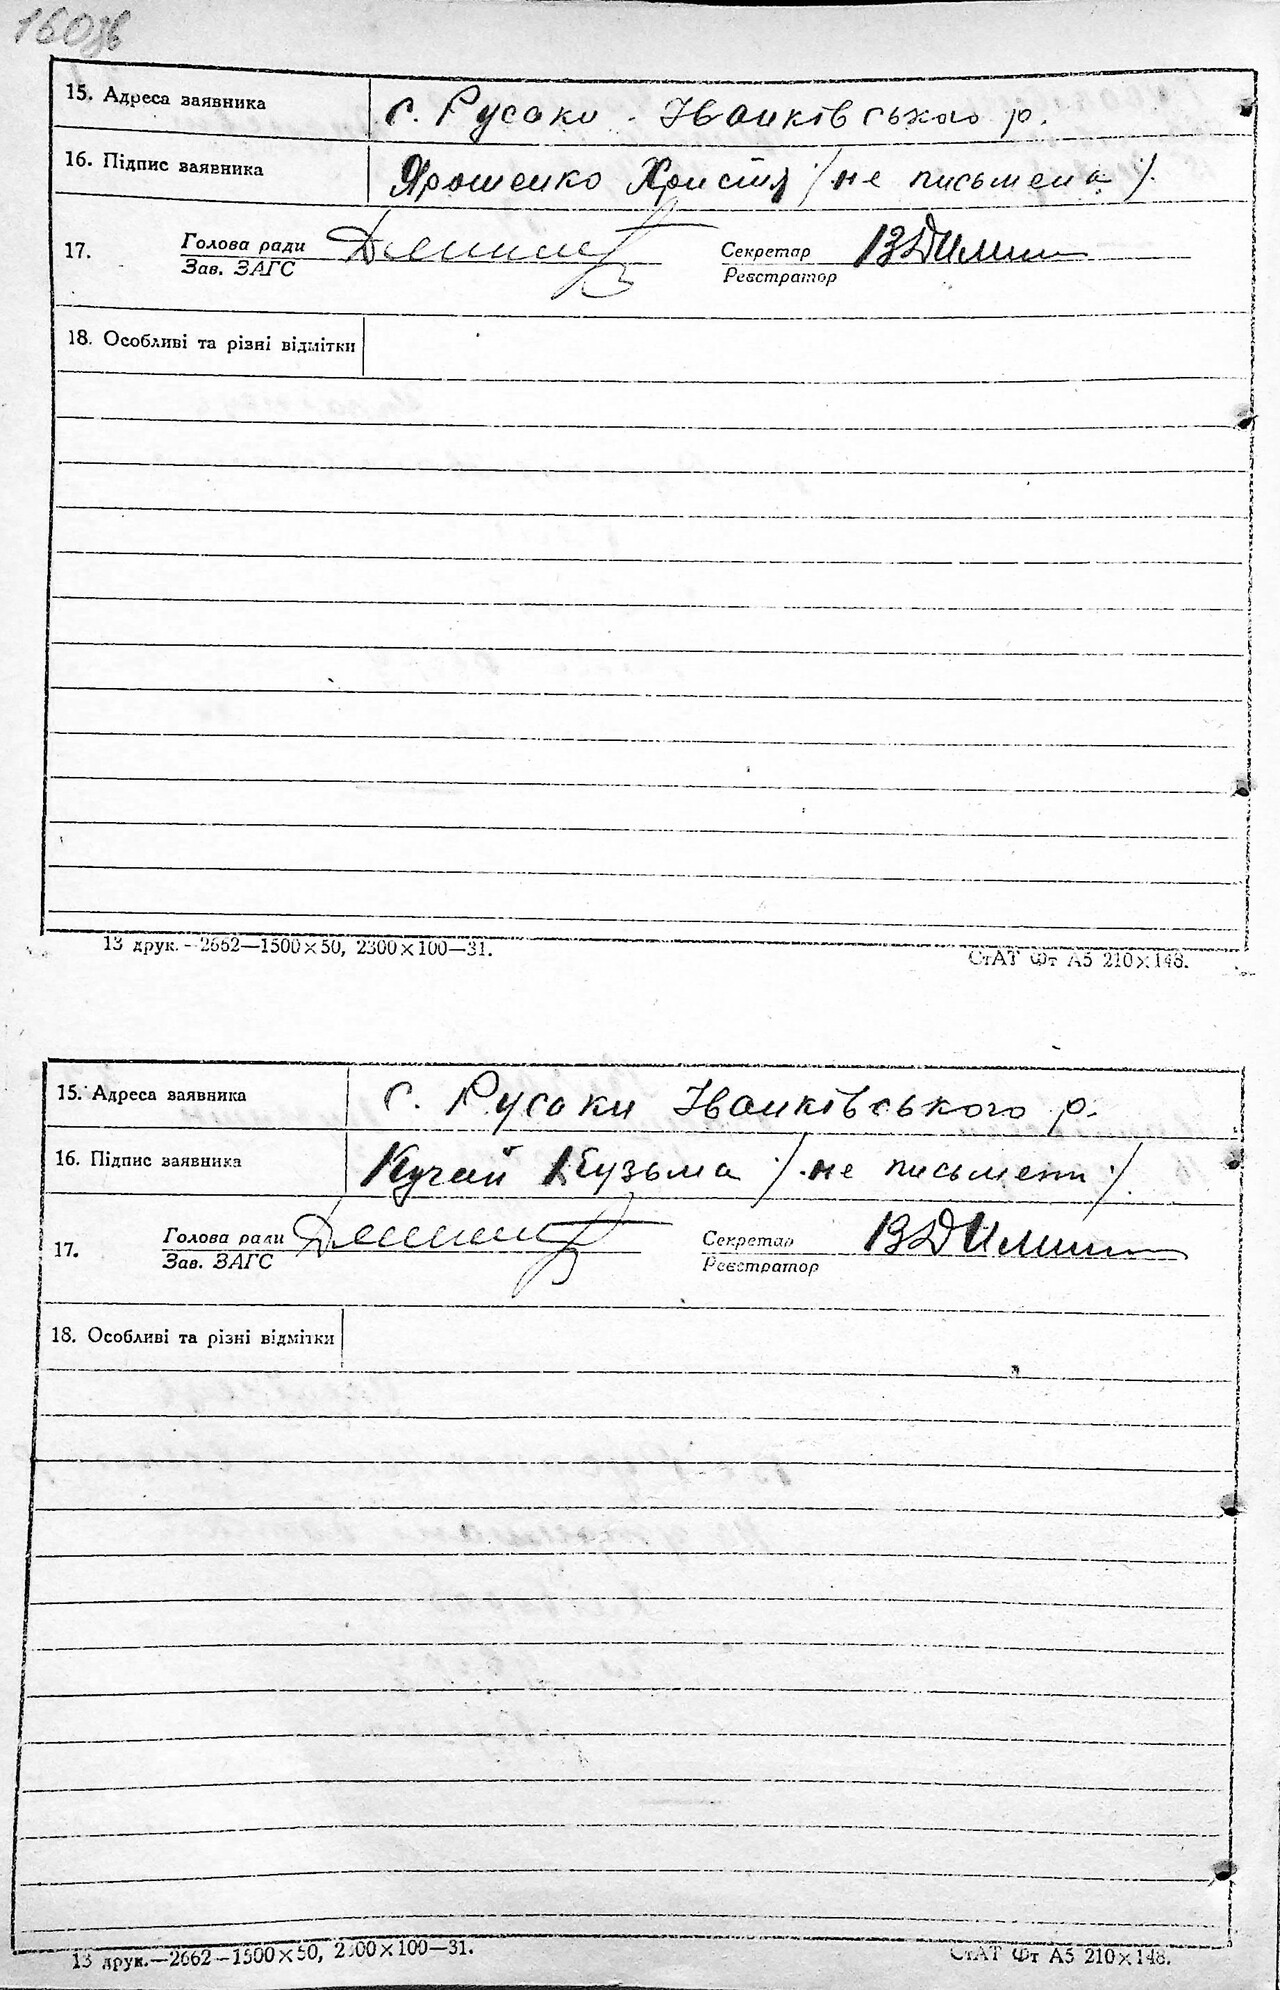 160зв
15. Адреса заявника с. Русаки Іванківського р.
16. Підпис заявника Ярошенко Христя /не письмена/.
17. Голова ради Секретар
Зав. ЗАГС Реєстратор
18. Особливі та різні відмітки
13 друк. - 2662—1500×50, 2300×100—31.
СтАТ Фт А5 210×148.
15. Адреса заявника с. Русаки Іванківського р.
16. Підпис заявника Кучай Кузьма /не письмени/.
17. Голова ради Секретар
Зав. ЗАГС Реєстратор
18. Особливі та різні відмітки
13 друк.—2662—1500×50, 2300×100—31.
СтАТ Фт А5 210×148.